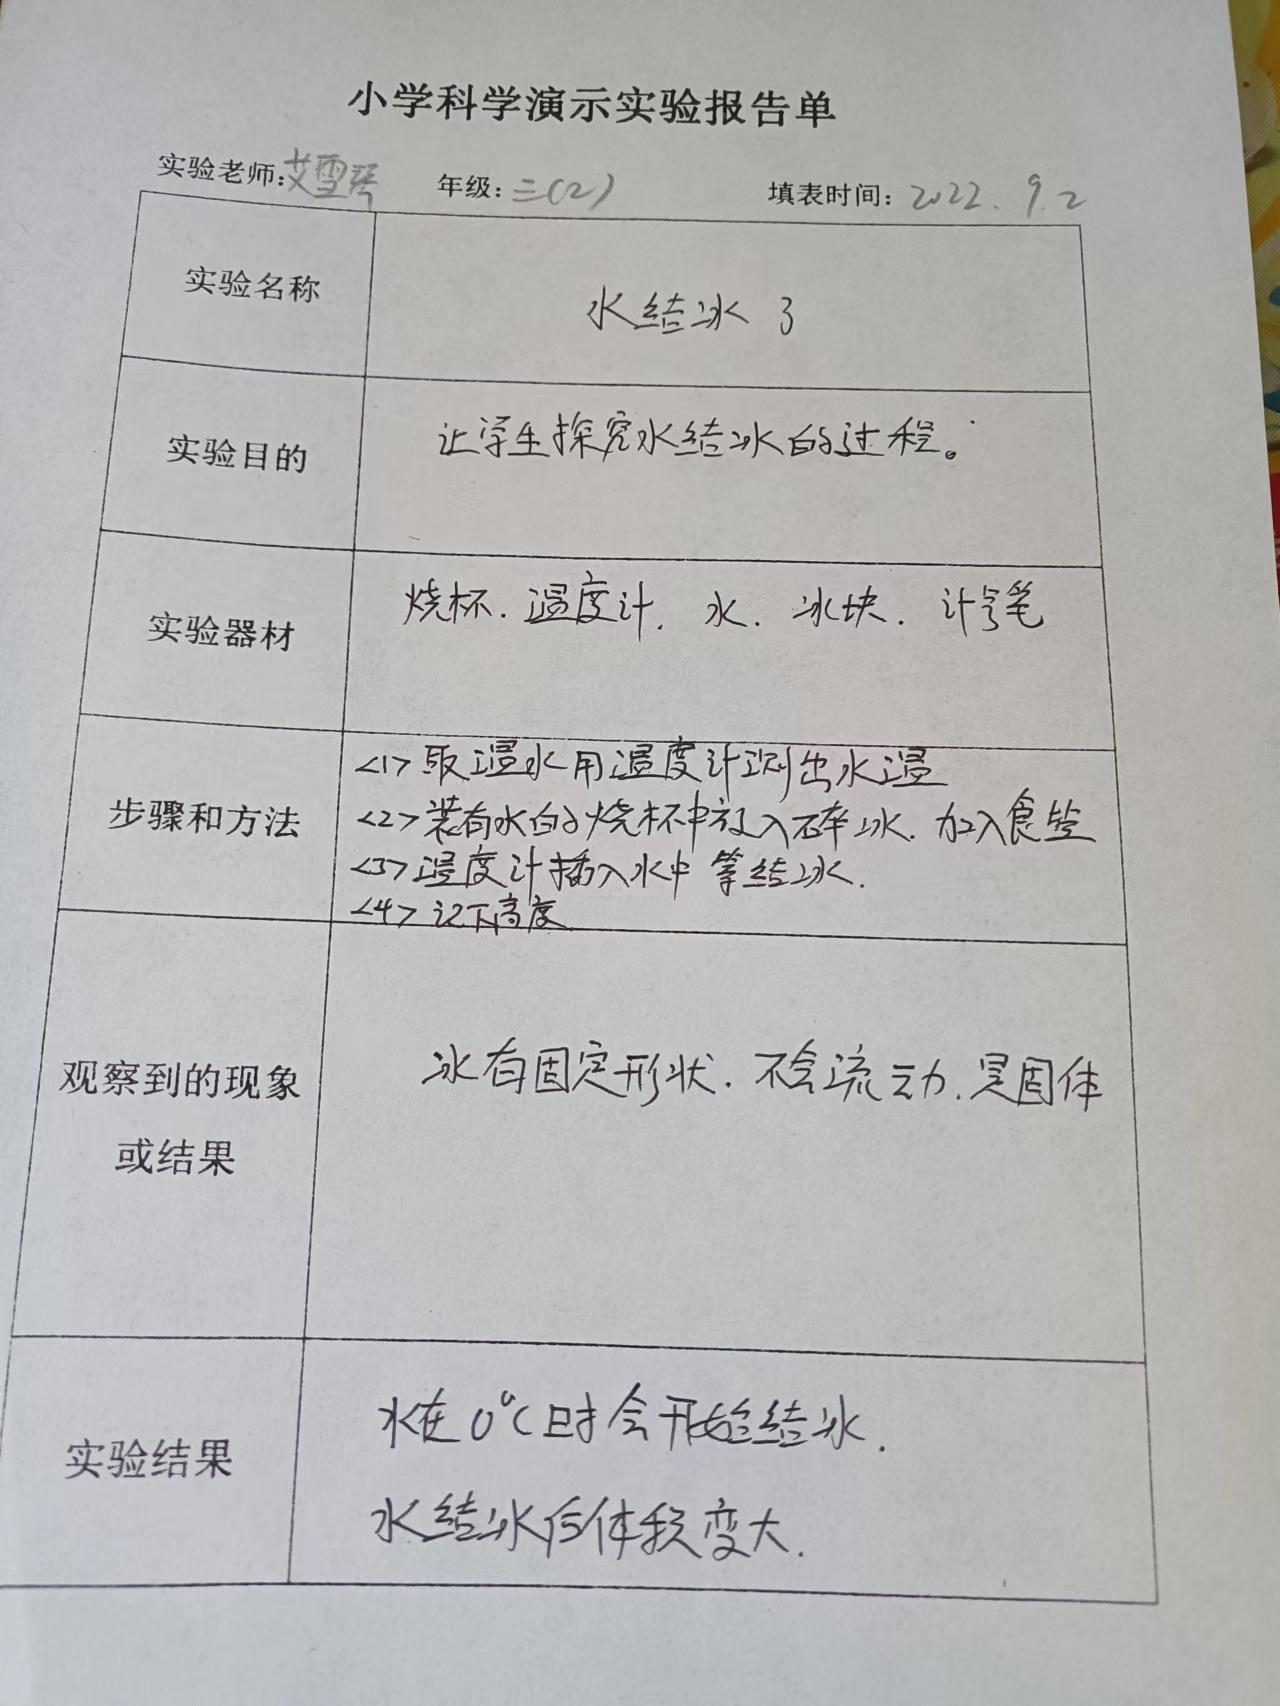 小学科学演示实验报告单
实验老师:艾雪琴 年级:三(2) 填表时间:2022.9.2
实验名称 水结冰了
实验目的 让学生探究水结冰的过程。
实验器材 烧杯.温度计.水.冰块.计号笔
步骤和方法
<1>取温水用温度计测出水温
<2>装有水的烧杯中放入碎冰.加入食盐
<3>温度计插入水中等结冰.
<4>记下高度.
观察到的现象
或结果
冰有固定形状.不会流动.是固体
实验结果
水在0℃时会开始结冰.
水结冰后体积变大.